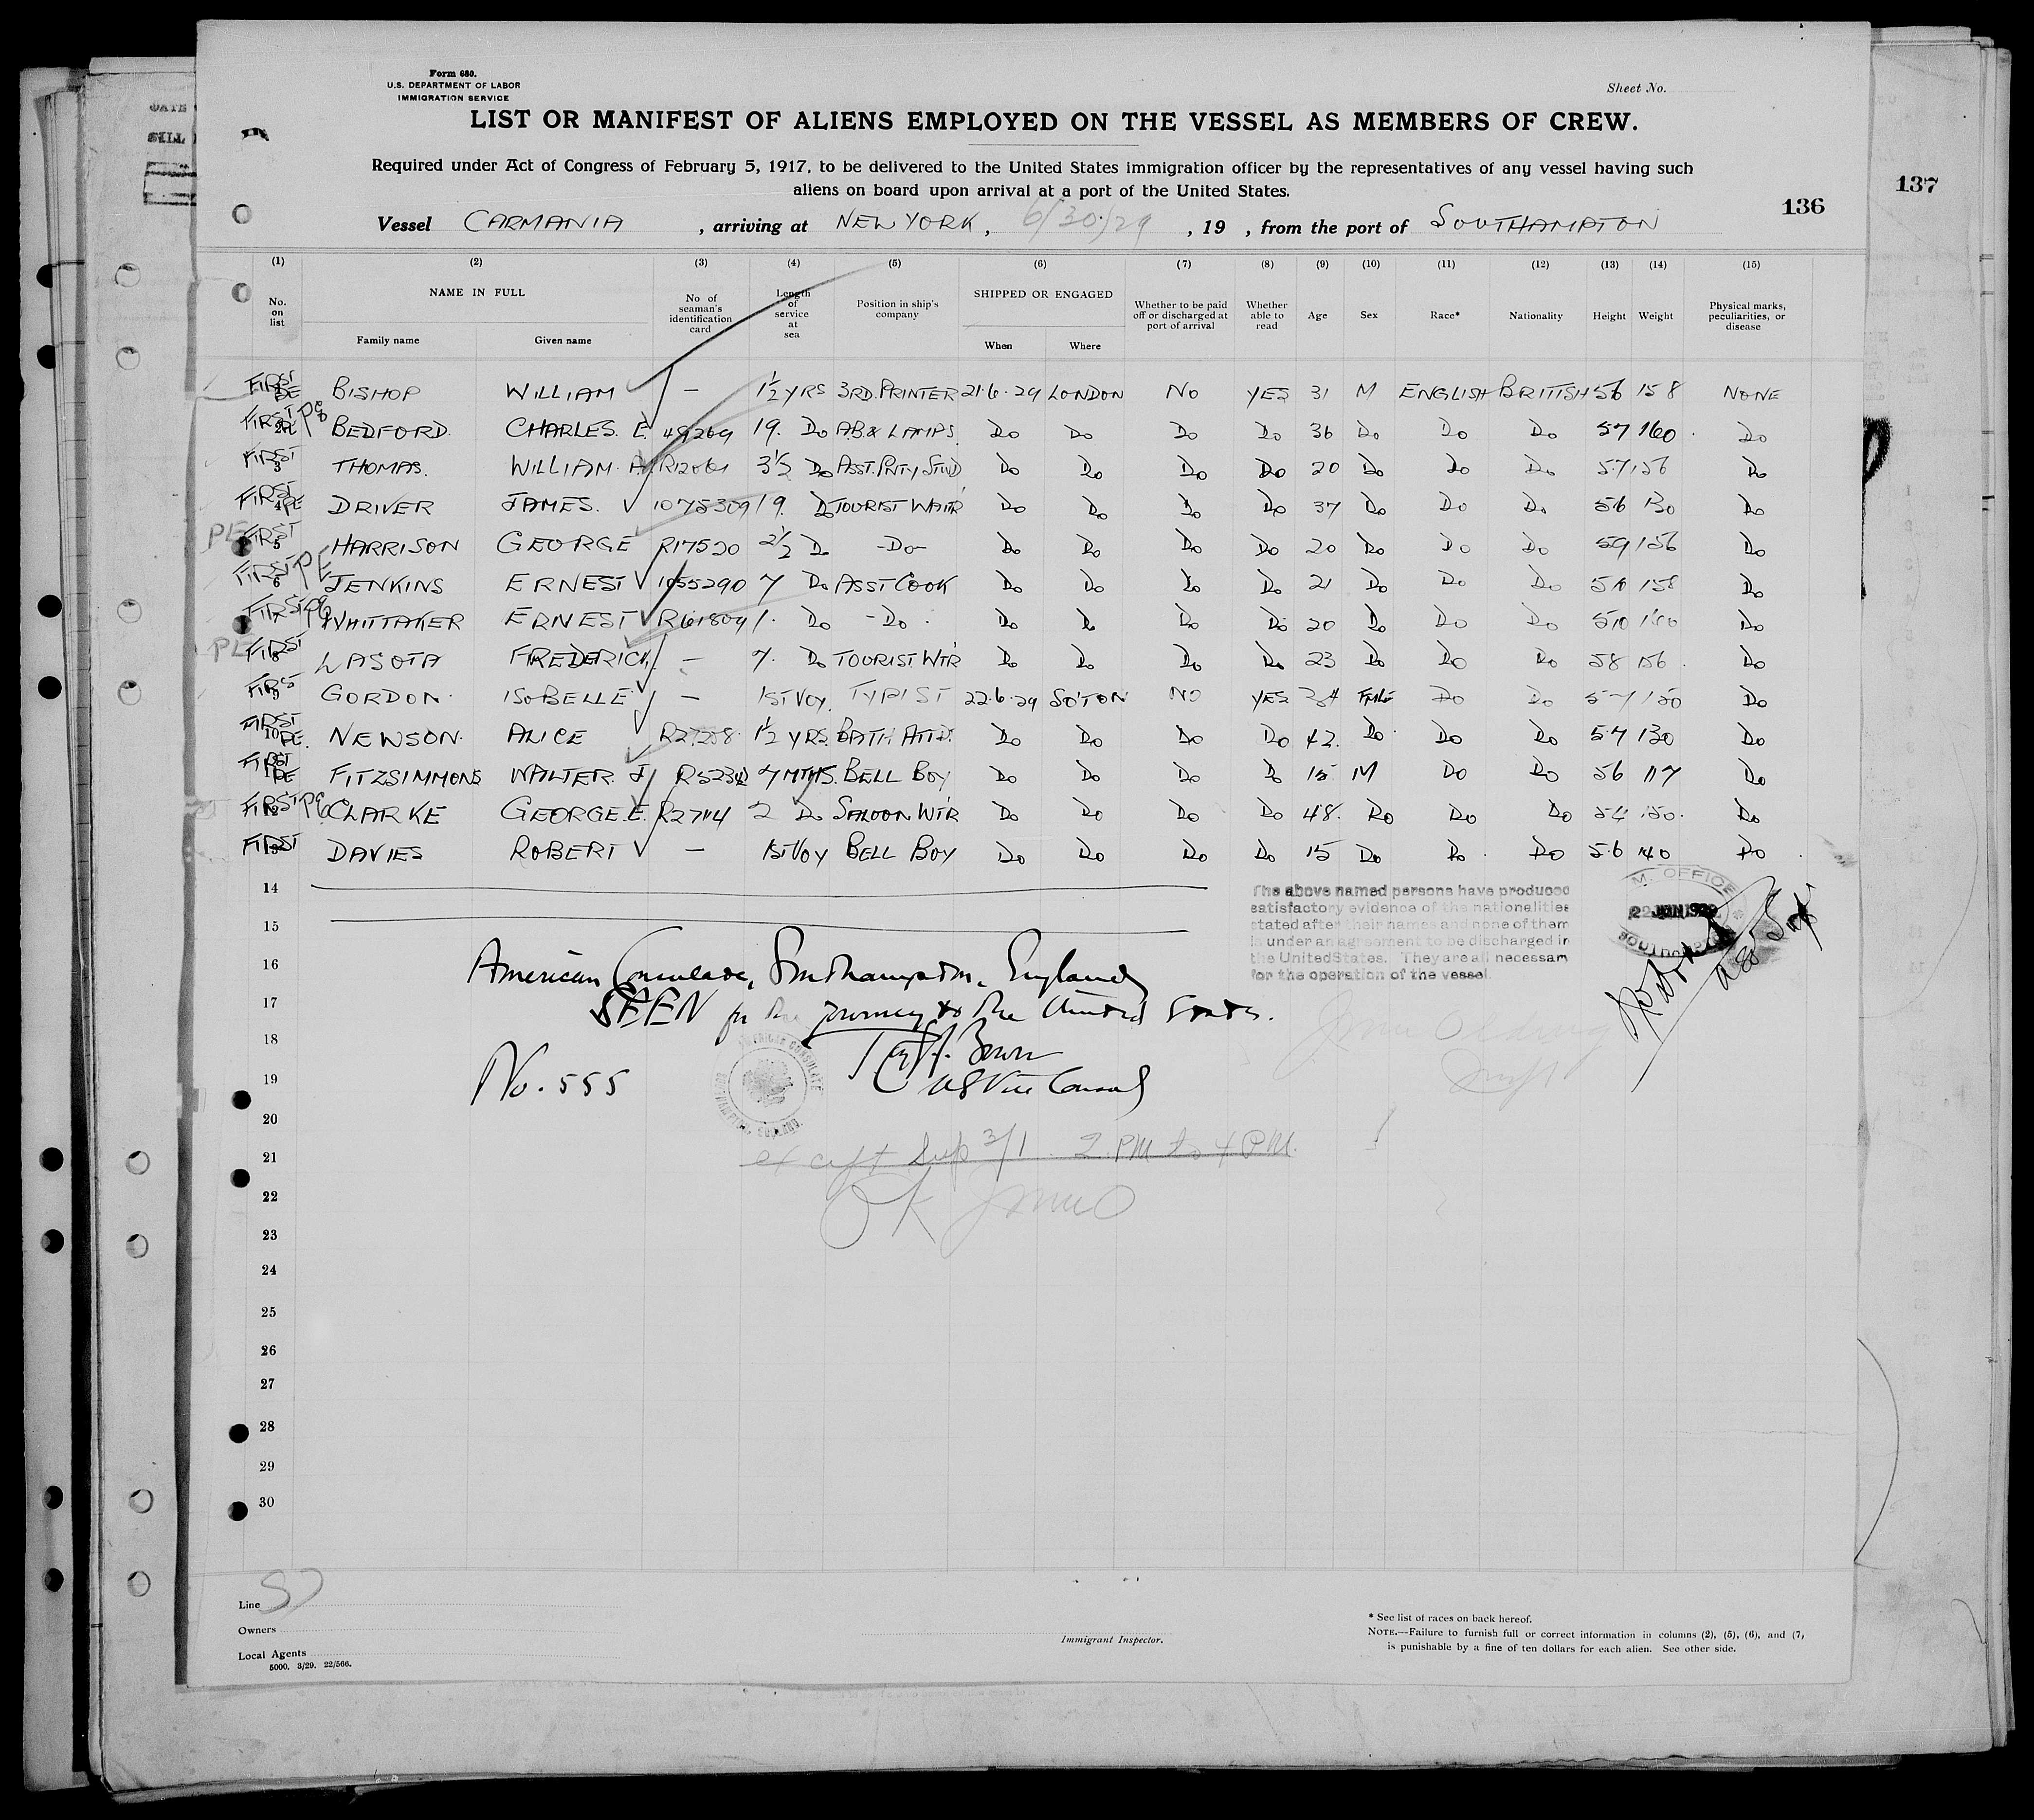 Form 680.
U.S. DEPARTMENT OF LABOR
IMMIGRATION SERVICE
Sheet No.
LIST OR MANIFEST OF ALIENS EMPLOYED ON THE VESSEL AS MEMBERS OF CREW.
Required under Act of Congress of February 5, 1917, to be delivered to the United States immigration officer by the representatives of any vessel having such
aliens on board upon arrival at a port of the United States.
136
137
Vessel CARMANIA, arriving at NEW YORK, 6/30/29, 19 , from the port of SOUTHAMPTON
(1) (2) (3) (4) (5) (6) (7) (8) (9) (10) (11) (12) (13) (14) (15)
No. on list NAME IN FULL Family name Given name No of seaman's identification card Length of service at sea Position in ship's company SHIPPED OR ENGAGED When Where Whether to be paid off or discharged at port of arrival Whether able to read Age Sex Race* Nationality Height Weight Physical marks, peculiarities, or disease
FIRST PE BISHOP WILLIAM — 1½ YRS 3RD. PRINTER 21.6.29 LONDON NO YES 31 M ENGLISH BRITISH 56 158 NONE
FIRST PE BEDFORD. CHARLES. E. 49269 19. Do A.B. & LAMPS. Do Do Do Do 36 Do Do Do 57 160 Do
FIRST 3 THOMAS. WILLIAM. 3½ Do ASST. PNTY STWD Do Do Do Do 20 Do Do Do 57 156 Do
FIRST 4 PE DRIVER JAMES. 1075309 19. Do TOURIST WAITR Do Do Do Do 37 Do Do Do 56 130 Do
PE FIRST 5 HARRISON GEORGE R17520 2½ Do -Do- Do Do Do Do 20 Do Do Do 59 156 Do
FIRST 6 PE JENKINS ERNEST 1055290 7 Do ASST COOK Do Do Do Do 21 Do Do Do 510 158 Do
FIRST PE WHITTAKER ERNEST R61809 1. Do -Do- Do Do Do Do 20 Do Do Do 510 Do
PE FIRST 8 LASOTA FREDERICK — 7. Do TOURIST WTR Do Do Do Do 23 Do Do Do 58 156 Do
FIRST 9 GORDON. ISOBELLE — 1ST VOY. TYPIST 22.6.29 SO'TON NO YES 34 FMLE Do Do 57 150 Do
FIRST 10 PE. NEWSON. ALICE 1½ YRS. BATH ATTD. Do Do Do Do 42. Do. Do Do 57 130 Do
FIRST PE FITZSIMMONS WALTER. J 7 MTHS. BELL BOY Do Do Do Do 15 M Do Do 56 117 Do
FIRST PE CLARKE GEORGE. E. R27114 2 Do SALOON WTR Do Do Do Do 48. Do Do Do 54 150. Do
FIRST DAVIES ROBERT — 1ST VOY BELL BOY Do Do Do Do 15 Do Do Do 5.6 140 Do
14
The above named persons have produced
satisfactory evidence of the nationalities
stated after their names and none of them
is under an agreement to be discharged in
the United States. They are all necessary
for the operation of the vessel.
15
16
American Consulate, Southampton, England
17
SEEN for the journey to the United States.
18
19
No. 555
US Vice Consul
AMERICAN CONSULATE
20
21
2 PM to 4 P.M.
22
OK
23
24
25
26
27
28
29
30
Line
Owners
Local Agents
5000. 3/29. 22/566.
Immigrant Inspector.
* See list of races on back hereof.
NOTE.—Failure to furnish full or correct information in columns (2), (5), (6), and (7)
is punishable by a fine of ten dollars for each alien. See other side.